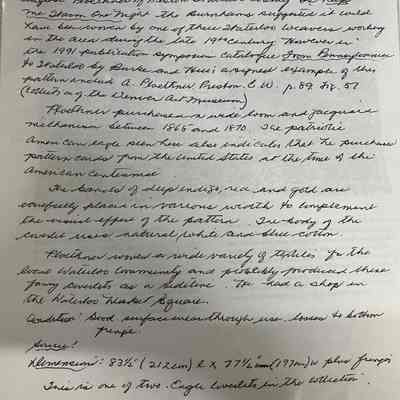 The Storm One Night the Burnhams suggested it would
have been woven by one of three Waterloo weavers working
in the area during the late 19th Century. However in
the 1991 publication symposium catalogue From Pennsylvania
to Waterloo by Burke and a signed example of this
pattern A. Ploethner Preston C.W. p. 89 fig. 57
(collection of the Denver Art Museum)
Ploethner purchased a wide loom and jacquard
mechanism between 1865 and 1870. The patriotic
American eagle seen here also indicates that he purchase
pattern cards from the United States at the time of the
American Centennial
The bands of deep indigo, red, and gold are
carefully placed in various width to complement
the visual effect of the pattern. The body of the
coverlet uses natural/white and blue cotton.
Ploethner wove a wide variety of textiles for the
local Waterloo Community and probably produced these
fancy coverlets as a sideline. He had a shop in
the Waterloo Market Square.
Condition: Good surface wear through use losses to bottom
fringe.
Source:
Dimension: 83½" (212cm) L x 77½" (197cm) w plus fringe
This is one of two Eagle coverlets in the collection.